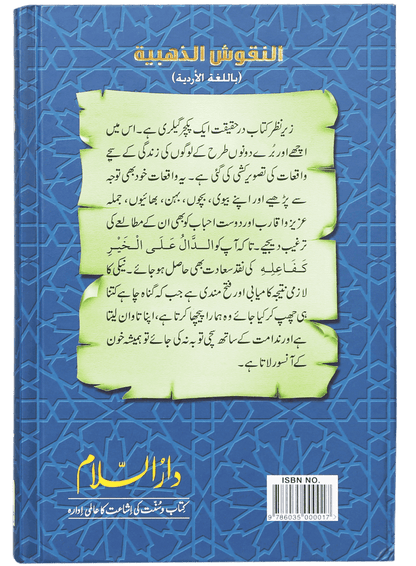 النقوش الذهبية
(باللغة الأردية)
زیرِ نظر کتاب در حقیقت ایک پکچر گیلری ہے۔ اس میں
اچھے اور بُرے دونوں طرح کے لوگوں کی زندگی کے سچے
واقعات کی تصویر کشی کی گئی ہے۔ یہ واقعات خود بھی توجہ
سے پڑھیے اور اپنے بیوی، بچوں، بہن، بھائیوں، جملہ
عزیز و اقارب اور دوست احباب کو بھی ان کے مطالعے کی
ترغیب دیجیے۔ تاکہ آپ کو الدَّالُّ عَلَى الْخَيْرِ
كَفَاعِلِهِ کی نقد سعادت بھی حاصل ہو جائے۔ نیکی کا
لازمی نتیجہ کامیابی اور فتح مندی ہے جب کہ گناہ چاہے کتنا
ہی چھپ کر کیا جائے وہ ہمارا پیچھا کرتا ہے، اپنا تاوان لیتا
ہے اور ندامت کے ساتھ سچی توبہ نہ کی جائے تو ہمیشہ خون
کے آنسو رلاتا ہے۔
دارُالسّلام
کتاب و سنّت کی اشاعت کا عالمی ادارہ
ISBN NO.
9 786035 000017